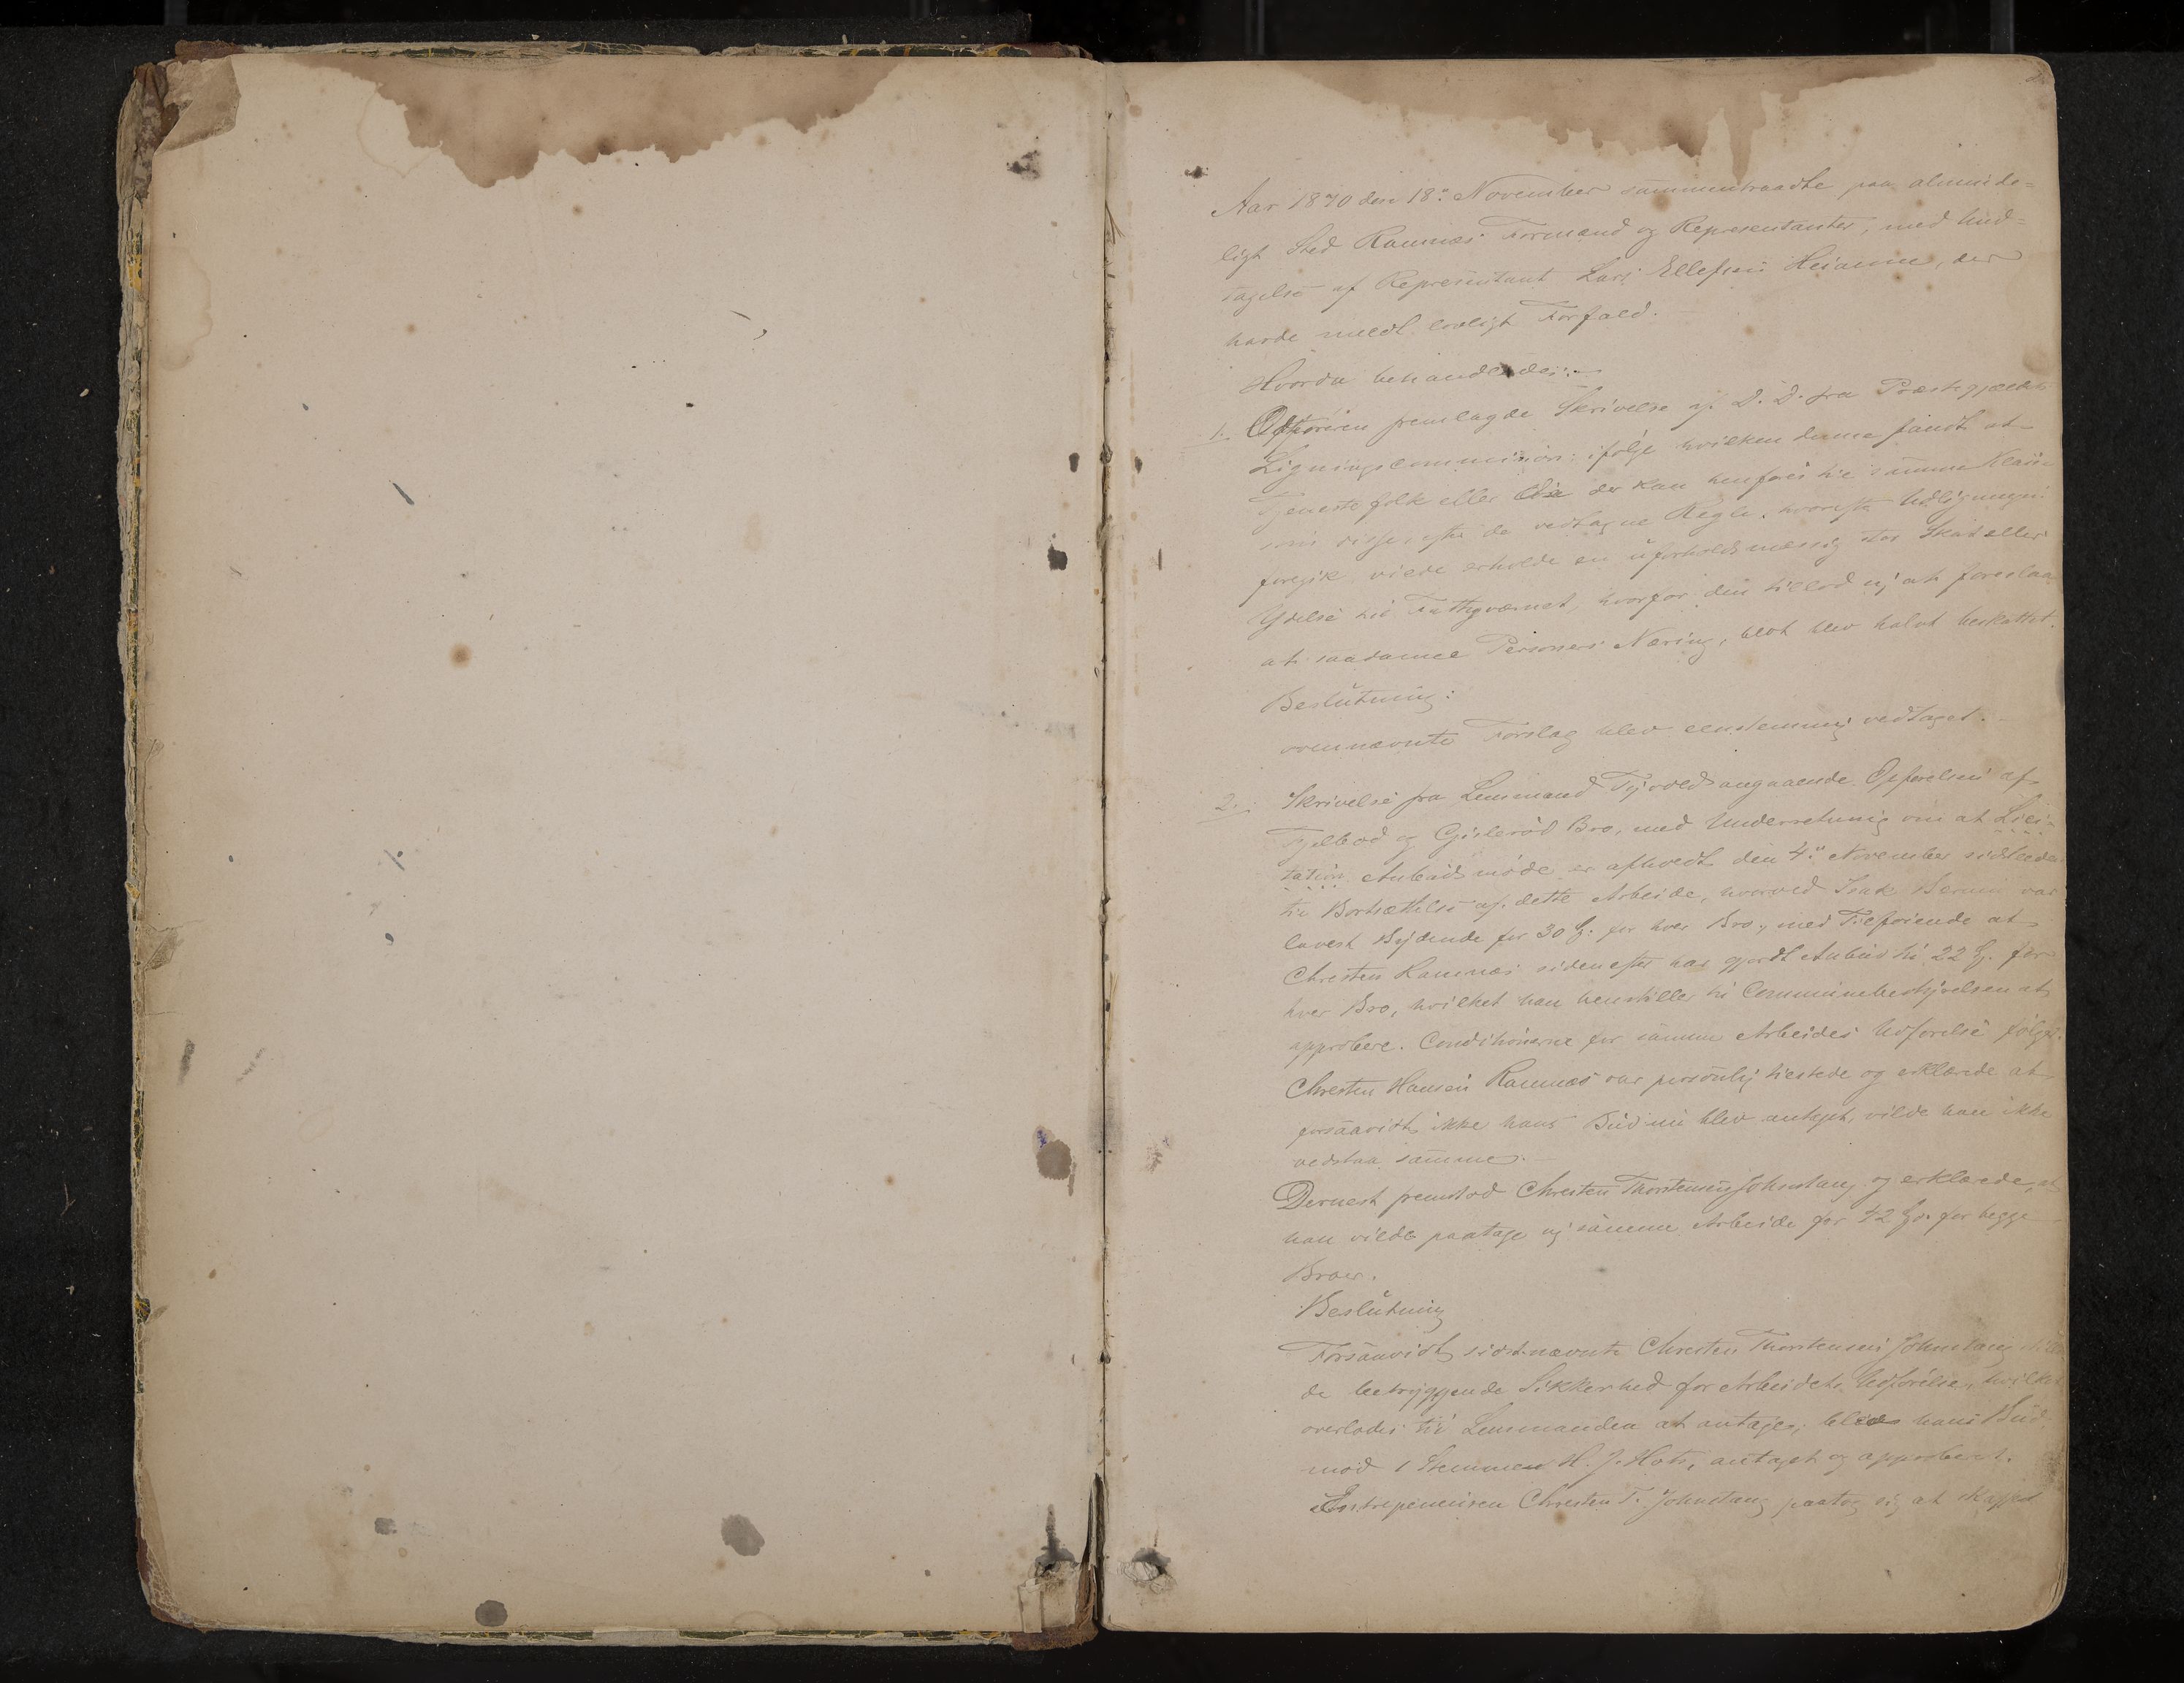 2.
Aar 1870 den 18de November sammentraadte paa alminde=
ligt Sted Ramnæs Formænd og Repræsentanter, med Und=
tagelse af Repræsentant Lars Ellefsen Heianne, der
havde meldt lovligt Forfald. –
Hvorda behandledes: –
1. Ordføreren fremlagde Skrivelse af D. D. fra Præstegjældets
Ligningscommission ifølge hvilken denne fandt at
Tjenestefolk eller der kan henføres til samme Klasse
som disse, efter de vedtagne Regler, hvorefter Udligningen
foregik vilde erholde en uforholdsmæssig stor Skat eller
Ydelse til Fattigvæsnet, hvorfor den tillod sig at foreslaa
at saadanne Personers Næring, blot blev halvt beskattet.
Beslutning:
ovennævnte Forslag blev eenstemmig vedtaget. –
2. Skrivelse fra Lensmand angaaende Opførelsen af
og Gislerød Bro, med Underretning om at Lici=
tation Anbudsmøde er afholdt den 4de November sidstleden
til Bortsættelse af dette Arbeide, hvorved Isak var
lavest Bydende for 30 for hver Bro, med Tilføiende at
Chresten Ramnæs sidenefter har gjordt Anbud til 22 for
hver Bro, hvilket han henstiller til Communebestyrelsen at
approbere. Conditionerne for samme Arbeides Udførelse følger.
Chresten Hansen Ramnæs var personlig tilstede og erklærede at
forsaavidt ikke hans Bud nu blev antaget, vilde han ikke
vedstaa samme. –
Dernest fremstod Chresten Thorstensen Johnstang og erklærede, at
han vilde paatage sig samme Arbeide for 42 for begge
Broer.
Beslutning
Forsaavidt sidstnævnte Chresten Thorstensen Johnstang
de betryggende Sikkerhed for Arbeidets Udførelse, hvilket
overlodes til Lensmanden at antage, blev hans Bud
mod 1 Stemme H. J. antaget og approberet.
Entrepeneuren Chresten T. Johnstang paatog sig at skaffe